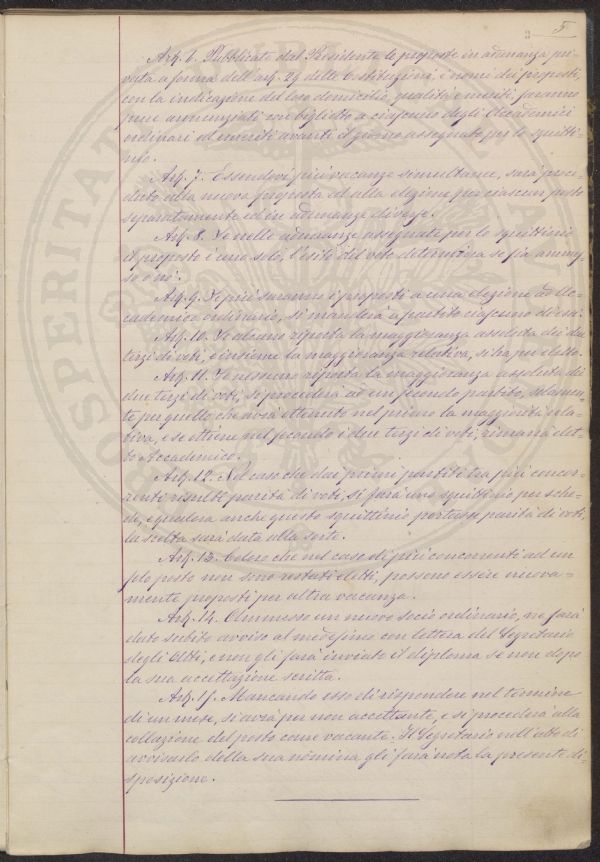 5
Art. 6. Pubblicate dal Presidente le proposte in adunanza pri-
vata a forma dell'art. 29 delle Costituzioni, i nomi dei proposti,
con la indicazione del loro domicilio, qualità e meriti, saranno
pure annunziati con biglietto a ciascuno degli Accademici
ordinari ed emeriti avanti il giorno assegnato per lo squitti-
nio.
Art. 7. Essendovi più vacanze simultanee, sarà proce-
duto alla nuova proposta ed alla elezione per ciascun posto
separatamente ed in adunanze diverse.
Art. 8. Se nelle adunanze assegnate per lo squittinio
il proposto è uno solo, l'esito del voto determina se sia ammes-
so o nò.
Art. 9. Se più saranno i proposti a una elezione ad Ac-
cademico ordinario, si manderà a partito ciascuno di essi.
Art. 10. Se alcuno riporta la maggioranza assoluta dei due
terzi di voti, e insieme la maggioranza relativa, si ha per eletto.
Art. 11. Se nessuno riporta la maggioranza assoluta dei
due terzi di voti, si procederà ad un secondo partito, solamen-
te per quello che avrà ottenuto nel primo la maggiorità rela-
tiva, e se ottiene nel secondo i due terzi di voti, rimarrà elet-
to Accademico.
Art. 12. Nel caso che dai primi partiti tra più concor-
renti risulti parità di voti, si farà uno squittinio per sche-
de, e qualora anche questo squittinio portasse parità di voti,
la scelta sarà data alla sorte.
Art. 13. Coloro che nel caso di più concorrenti ad un
solo posto non sono restati eletti, possono essere nuova-
mente proposti per altra vacanza.
Art. 14. Ammesso un nuovo socio ordinario, ne sarà
dato subito avviso al medesimo con lettera del Segretario
degli Atti, e non gli sarà inviato il diploma se non dopo
la sua accettazione scritta.
Art. 15. Mancando esso di rispondere nel termine
di un mese, si avrà per non accettante, e si procederà alla
collazione del posto come vacante. Il Segretario nell'atto di
avvisarlo della sua nomina gli farà nota la presente di-
sposizione.